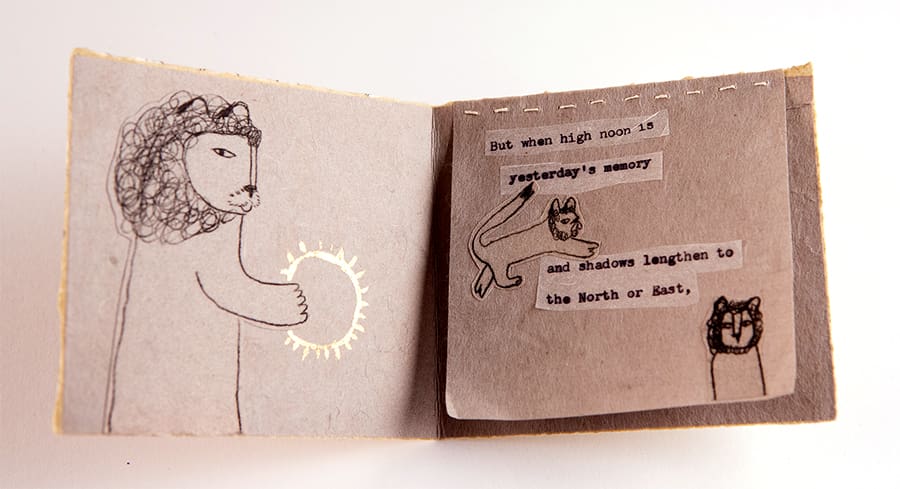 But when high noon is
yesterday's memory
and shadows lengthen to
the North or East,